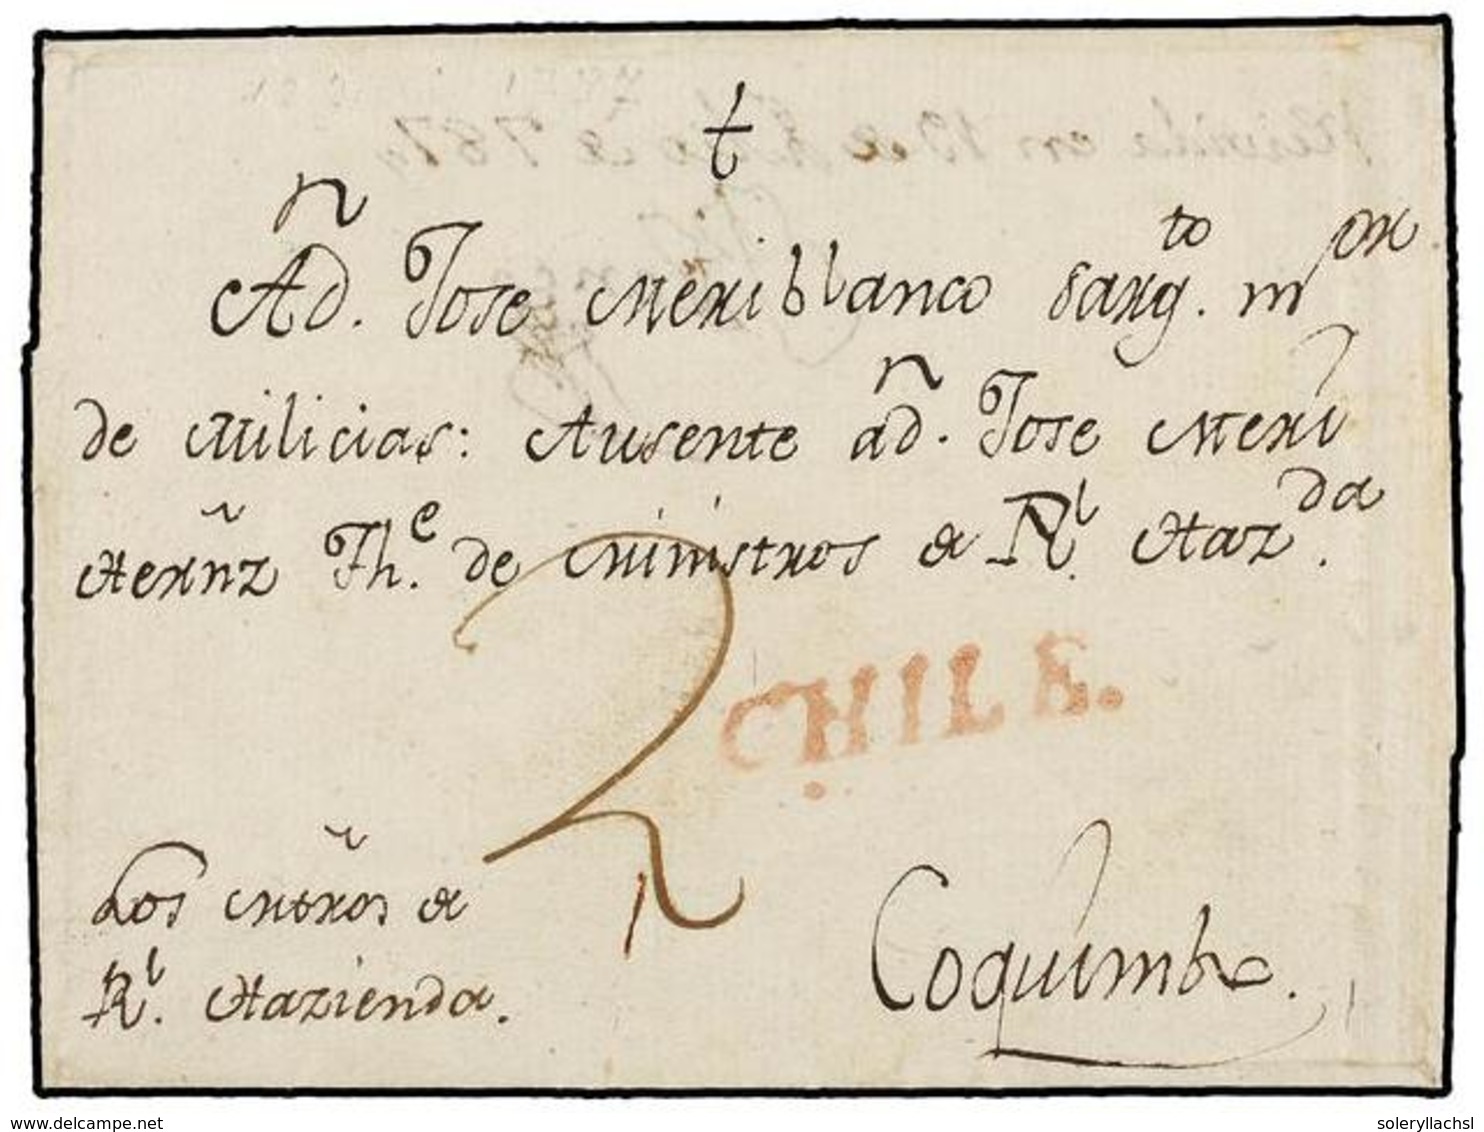 t
A Dn. Jose Meriblanco Sargto. mor.
de Milicias: Ausente a Dn. Jose Meri
Herñz The. de Ministros de Rl. Hazda.
2
CHILE.
Los Mtros de
Rl. Hazienda.
Coquimbo.
delcampe.net
soleryllachsl